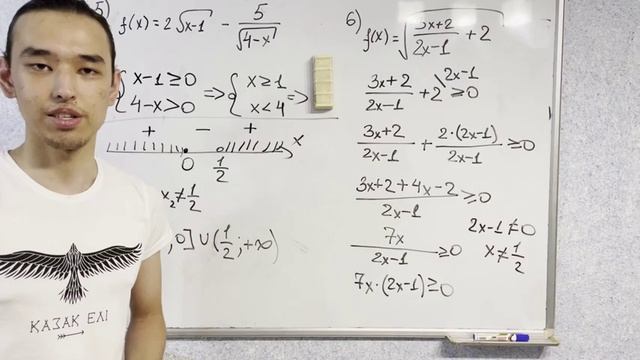 5) f(x)=2√x-1 - 5/√4-x
{x-1≥0 => {x≥1 =>
{4-x>0 {x<4
+ - +
0 1/2 x
x₂≠1/2
0]∪(1/2;+∞)
6) f(x)=√3x+2/2x-1 + 2
3x+2/2x-1 + 2\2x-1 ≥0
3x+2/2x-1 + 2·(2x-1)/2x-1 ≥0
3x+2+4x-2/2x-1 ≥0
7x/2x-1 ≥0
7x·(2x-1)≥0
2x-1≠0
x≠1/2
ҚАЗАҚ ЕЛІ